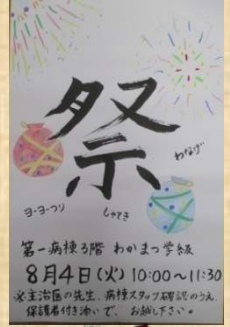 祭
わなげ
ヨーヨーつり
しゃてき
第一病棟3階 わかまつ学級
8月4日(火) 10:00〜11:30
※主治医の先生、病棟スタッフ確認のうえ、
保護者付き添いで、お越し下さい。